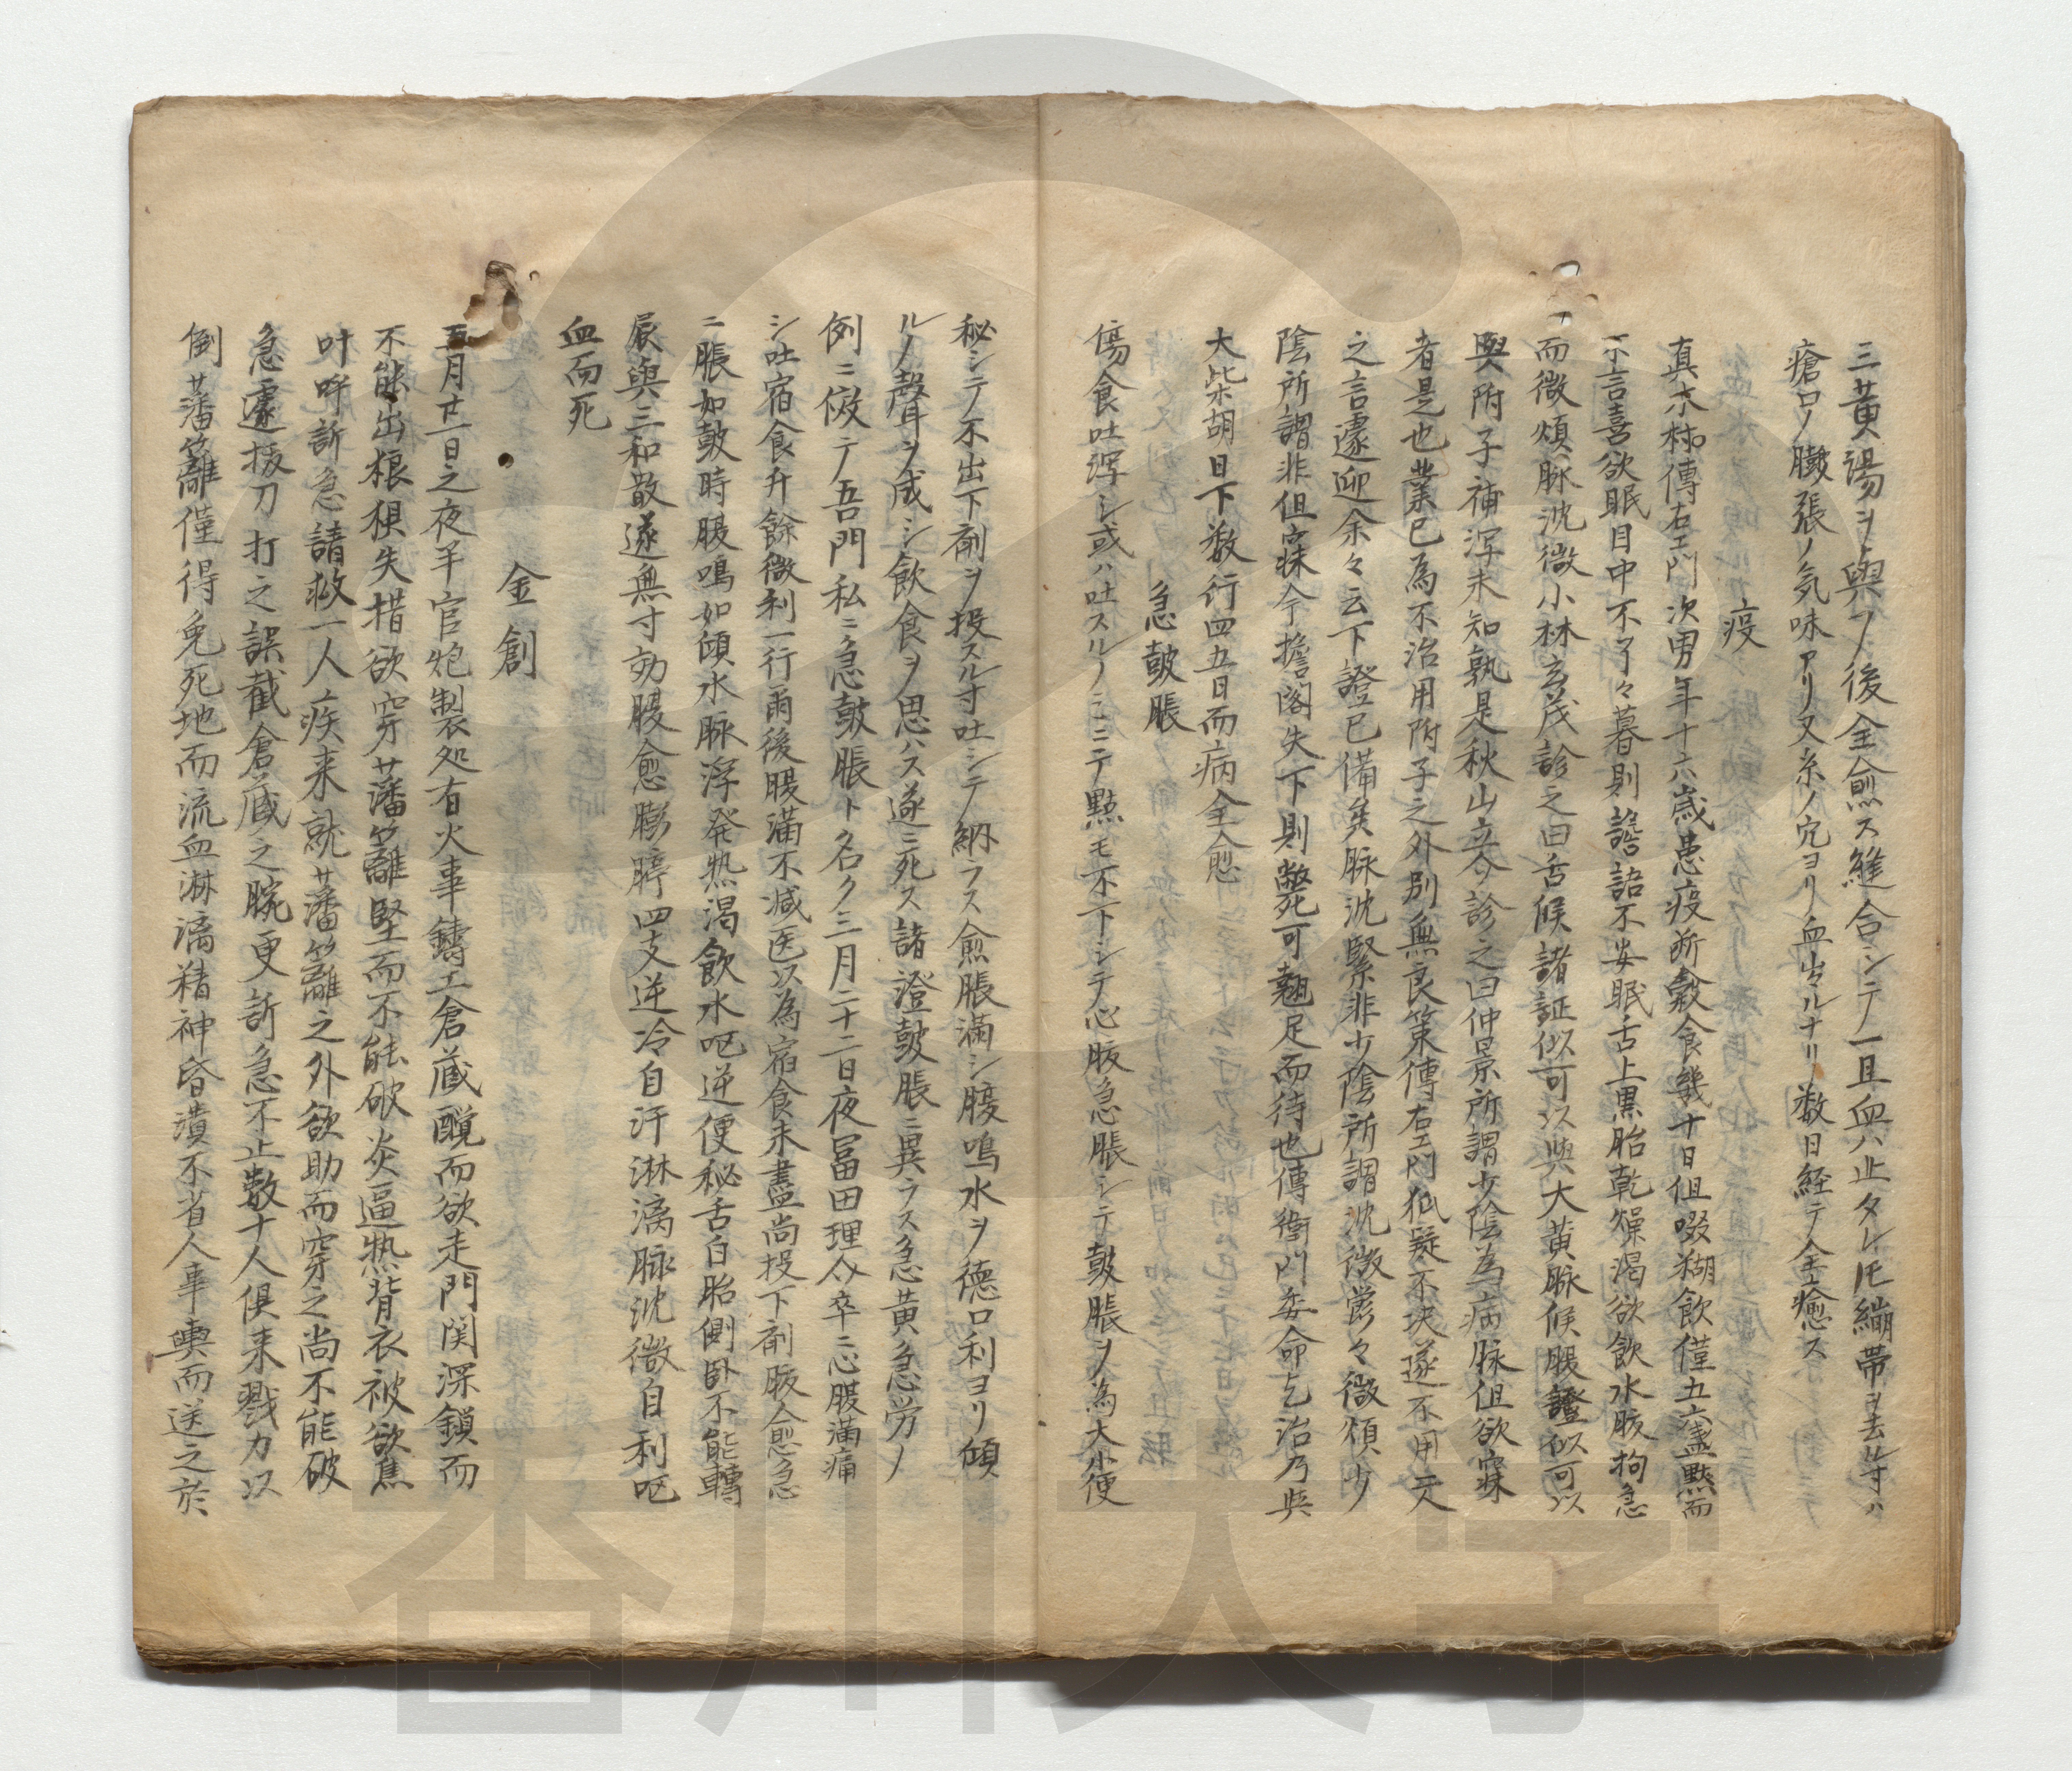 三黄湯ヲ與フ後全愈ス縫合シテ一旦血ハ止タレ𪜈繃帯ヲ去ル寸ハ
瘡口ノ臓張ノ気味アリ又糸ノ穴ヨリ血出ルナリ数日経テ全癒ス
疫
真木村傳右エ門次男年十六歳患疫断穀食幾十日但啜糊飲僅五六盞黙而
不言喜欲眠目中不了々暮則譫語不安眠舌上黒胎乾燥渇欲飲水腹拘急
而微煩脉沈微小林玄茂診之曰舌候諸証似可以與大黄脉候腹證似可以
與附子補瀉未知孰是秋山立介診之曰仲景所謂少陰為病脉但欲寐
者是也業已為不治用附子之外別無良策傳右エ門狐疑不決遂不用二人
之言遽迎余々云下證已備矣脉沈緊非少陰所謂沈微嘗々微煩少
陰所謂非但寐今擔閣失下則斃死可翹足而待也傳衛門委命乞治乃與
大柴胡日下数行四五日而病全愈
急皷脹
傷食吐瀉シ或ハ吐スルノミニテ點モ不下シテ心腹急脹シテ皷脹ヲ為大小便
秘シテ不出下剤ヲ投スル寸吐シテ納ラス愈脹満シ腹鳴水ヲ徳口利ヨリ傾
ルノ聲ヲ成シ飲食ヲ思ハス遂ニ死ス諸證皷脹ニ異ラス急黄急労ノ
例ニ傚テ吾門私ニ急皷脹ト名ク三月二十二日夜冨田理介卒ニ心腹満痛
シ吐宿食升餘微利一行爾後腹満不減医以為宿食未盡尚投下剤腹愈急
ニ脹如皷時腹鳴如傾水脉浮発熱渇飲水呃逆便秘舌白胎側臥不能轉
展與三和散遂無寸効腹愈膨脝四支逆冷自汗淋漓脉沈微自利呃
血而死
金創
五月廿一日之夜半官炮製処有火事鑄工倉蔵覺而欲走門関深鎖而
不能出狼狽失措欲穿藩籬堅而不能破炎逼熱背衣被欲焦
叶呼訴急請救一人疾来就藩籬之外欲助而穿之尚不能破
急遽抜刀打之誤截倉蔵之腕更訴急不止数十人倶来戮力以
倒藩籬僅得免死地而流血淋漓精神昏潰不省人事輿而送之於